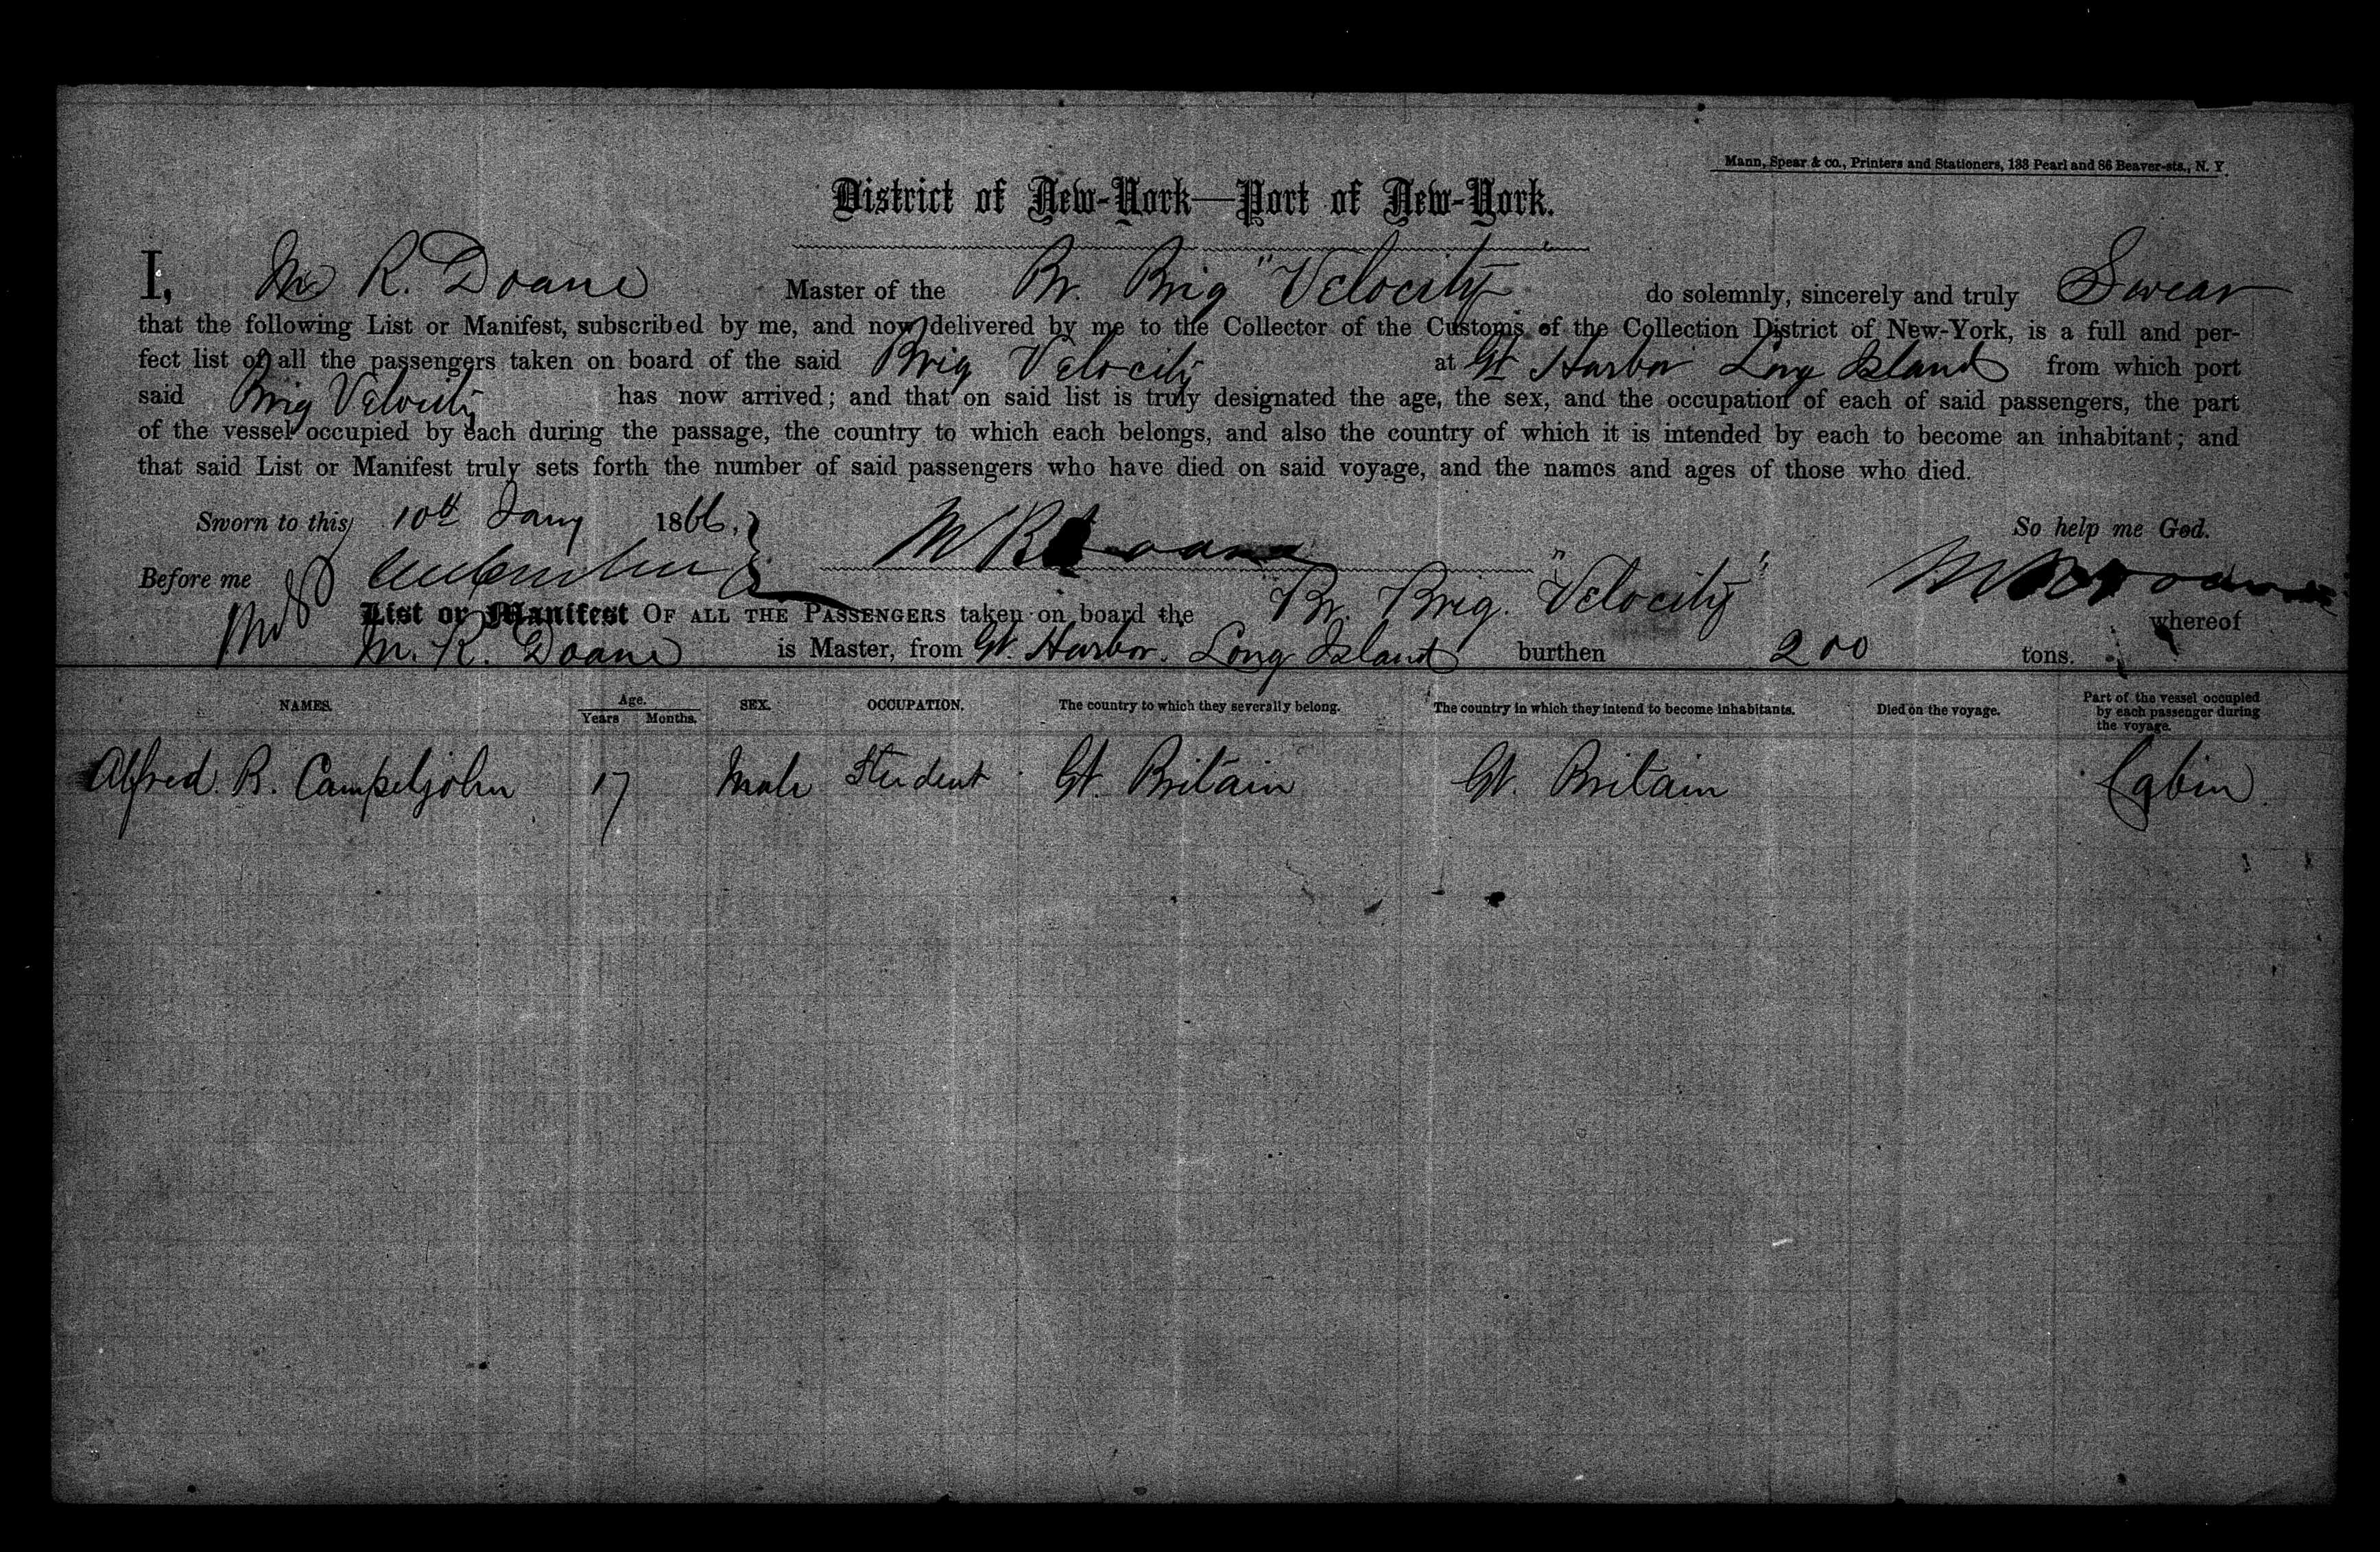 Mann, Spear & co., Printers and Stationers, 133 Pearl and 86 Beaver-sts., N. Y.
District of New-York—Port of New-York.
I, M R. Doane Master of the Br. Brig "Velocity" do solemnly, sincerely and truly Swear
that the following List or Manifest, subscribed by me, and now delivered by me to the Collector of the Customs of the Collection District of New-York, is a full and per-
fect list of all the passengers taken on board of the said Brig Velocity at Gt Harbor Long Island from which port
said Brig Velocity has now arrived; and that on said list is truly designated the age, the sex, and the occupation of each of said passengers, the part
of the vessel occupied by each during the passage, the country to which each belongs, and also the country of which it is intended by each to become an inhabitant; and
that said List or Manifest truly sets forth the number of said passengers who have died on said voyage, and the names and ages of those who died.
Sworn to this 10th Jany 1866. M R Doane So help me God.
Before me M R Doane
List or Manifest OF ALL THE PASSENGERS taken on board the Br. Brig. "Velocity" whereof
M. R. Doane is Master, from Gt. Harbor. Long Island burthen 200 tons.
NAMES. Age. Years Months. SEX. OCCUPATION. The country to which they severally belong. The country in which they intend to become inhabitants. Died on the voyage. Part of the vessel occupied by each passenger during the voyage.
Alfred. R. Campeljohn 17 Male Student Gt. Britain Gt. Britain Cabin